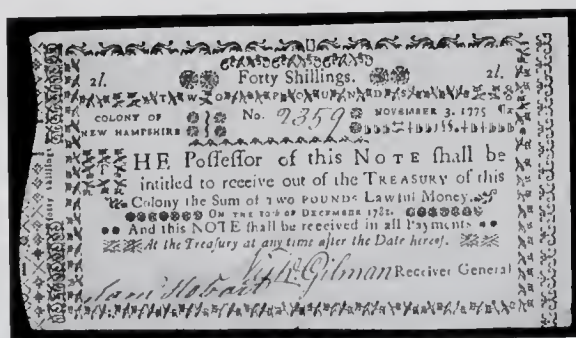 2l. Forty Shillings. 2l.
TWO POUNDS
COLONY OF NEW HAMPSHIRE No. 2359 NOVEMBER 3. 1775
THE Possessor of this NOTE shall be
intitled to receive out of the TREASURY of this
Colony the Sum of TWO POUNDS Lawful Money.
ON THE 20th of DECEMBER 1782.
And this NOTE shall be received in all Payments
At the Treasury at any time after the Date hereof.
Gilman Receiver General
Saml Hobart
forty shillings